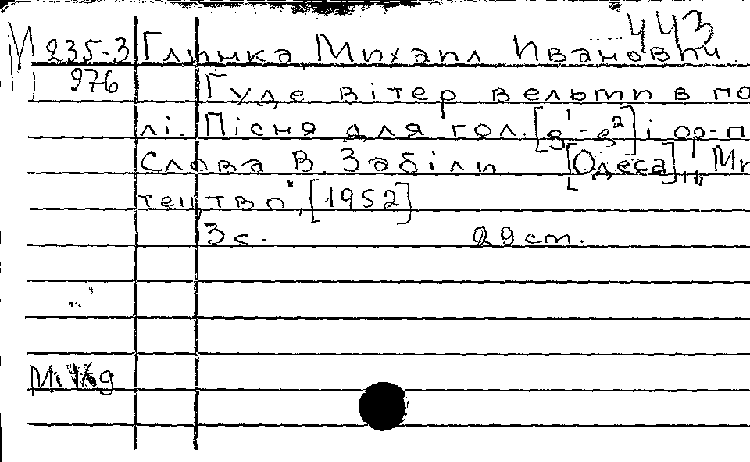 443
М 235-3 Глинка, Михаил Иванович.
276 Гуде вітер вельми в по
лі. Пісня для гол. [g¹-g²] і ор-п
Слова В. Забіли [Одеса], „Ми
тецтво", [1952]
3 с. 29 cm.